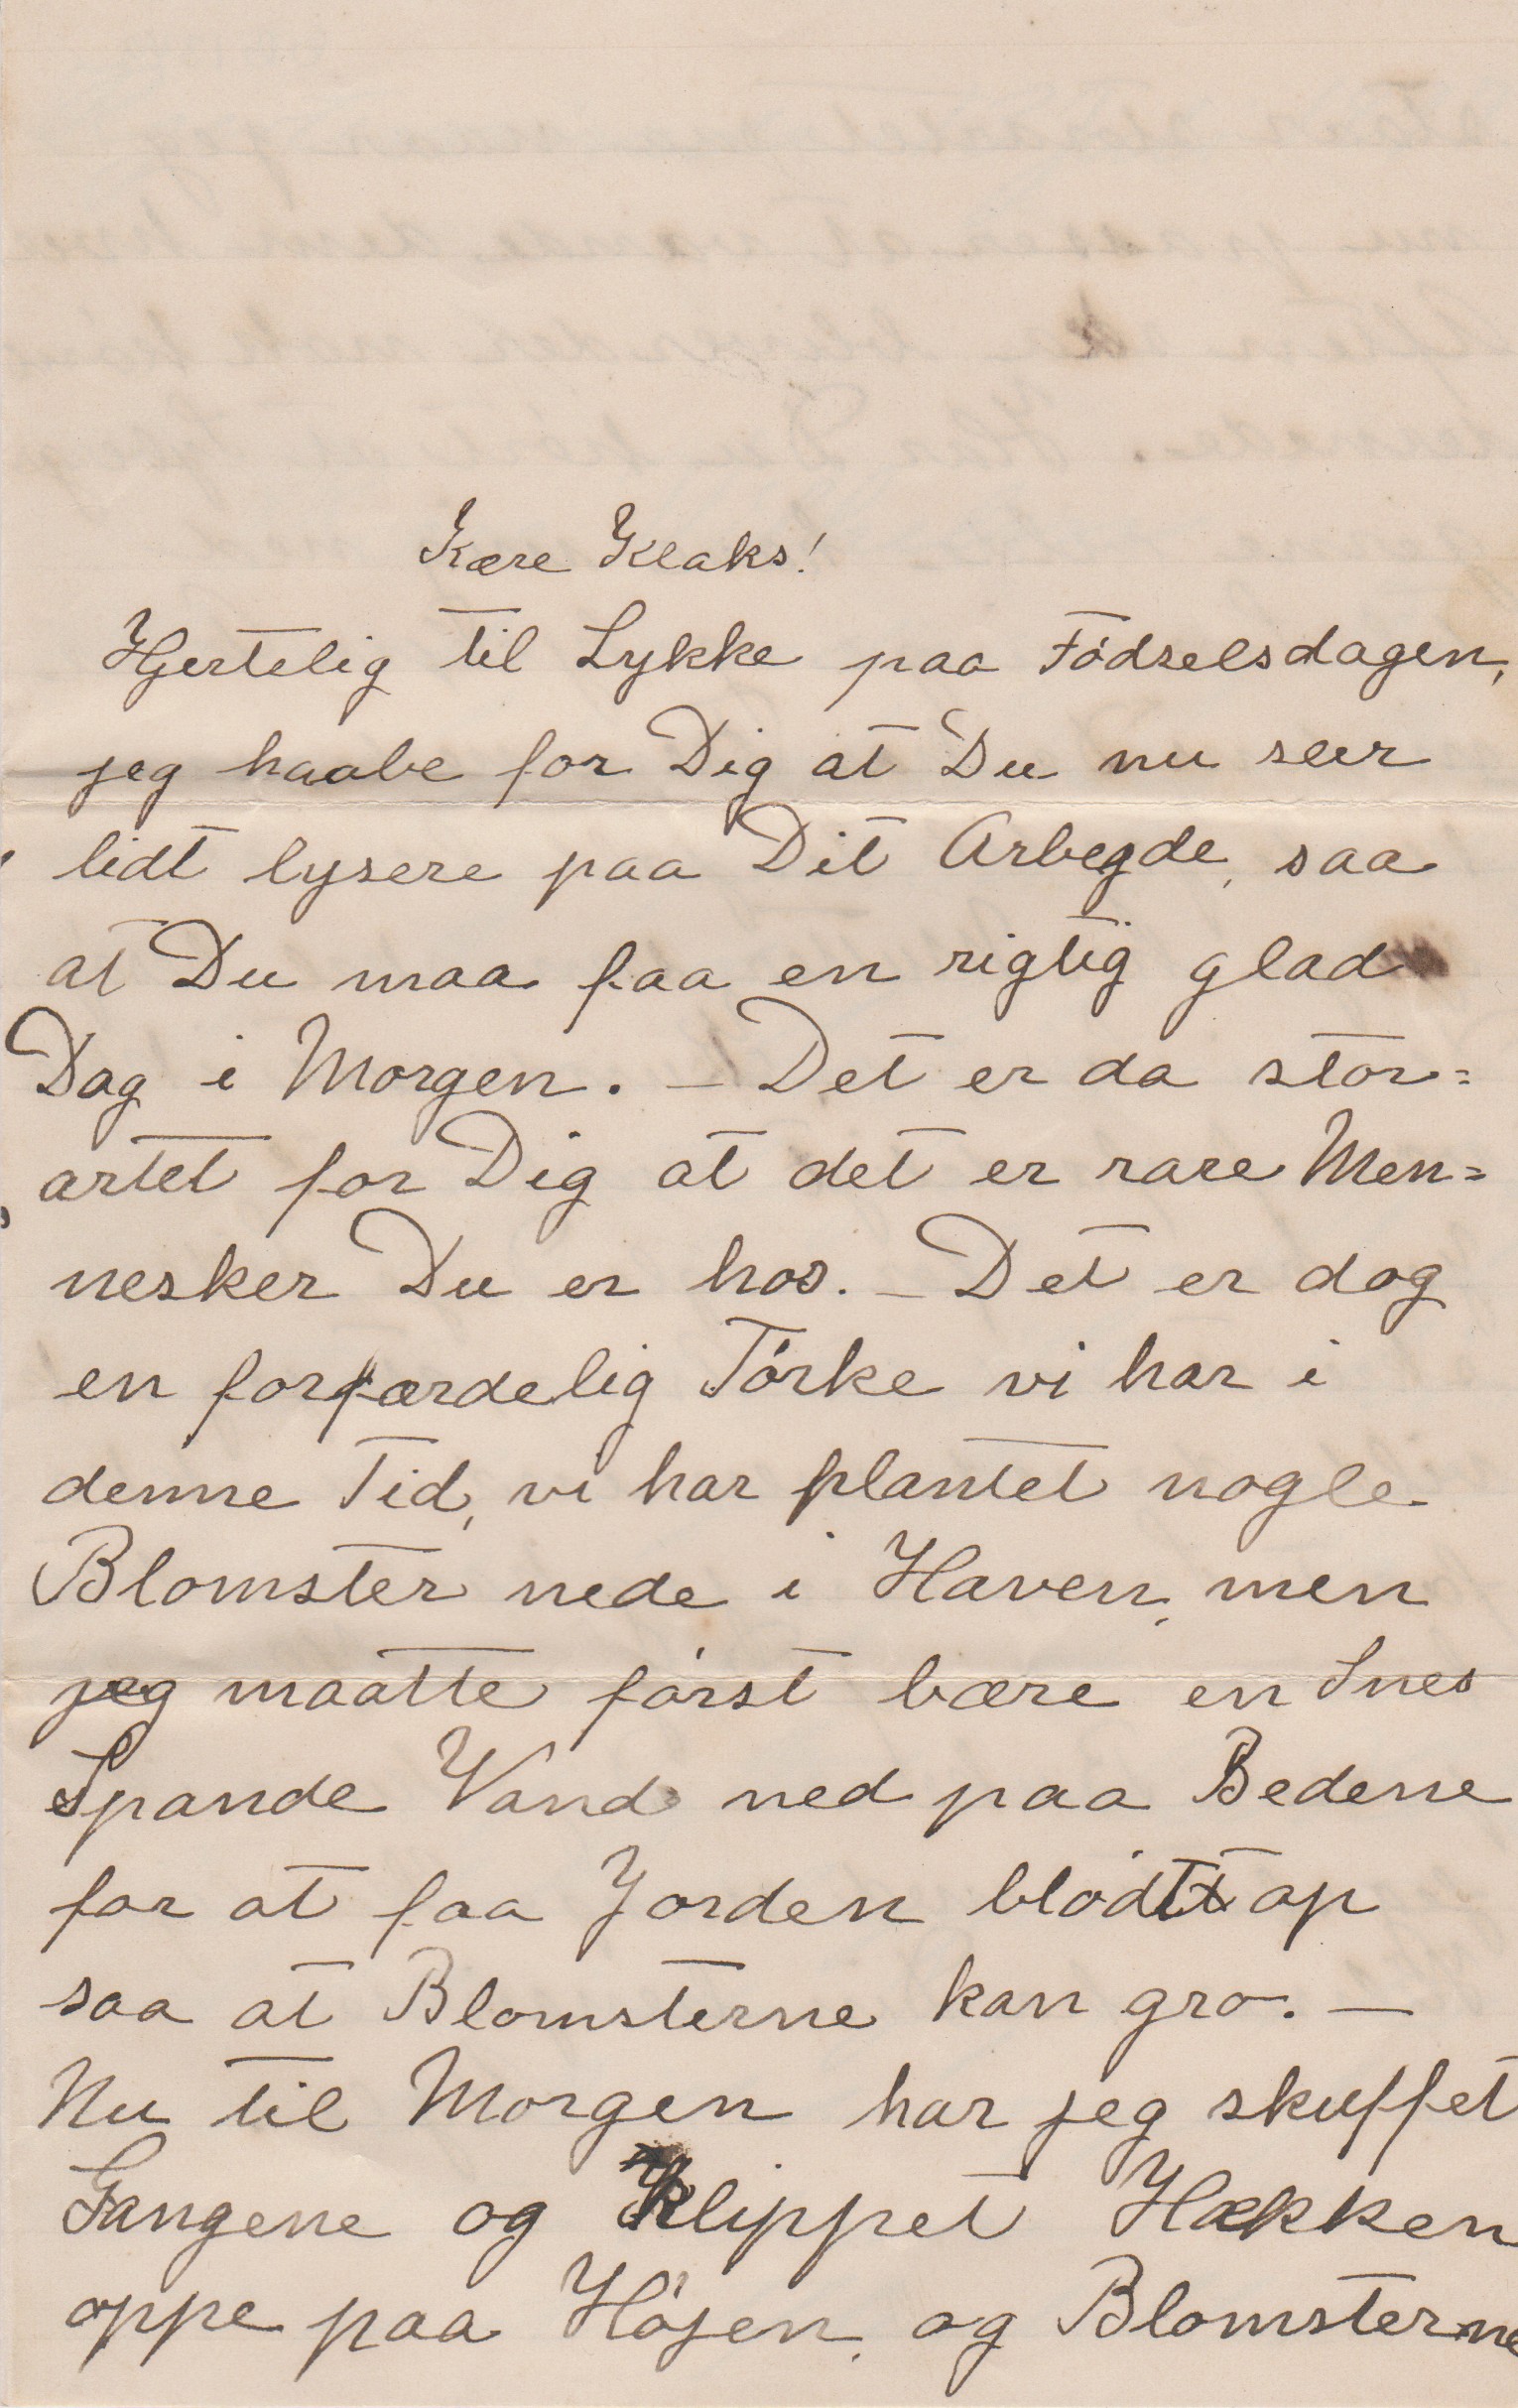 Kære Klaks!
Hjertelig til Lykke paa Fódselsdagen,
jeg haabe for Dig at Du nu seer
lidt lysere paa Dit Arbejde, saa
at Du maa faa en rigtig glad
Dag i Morgen. – Det er da stor=
artet for Dig at det er rare Men=
nesker Du er hos. – Det er dog
en forfærdelig Tórke vi har i
denne Tid, vi har plantet nogle
Blomster nede i Haven, men
jeg maatte fórst bære en Snes
Spande Vand ned paa Bedene
for at faa Jorden blódt op
saa at Blomsterne kan gro. –
Nu til Morgen har jeg skuffet
Gangene og Klippet Hækken
oppe paa Hójen, og Blomsterne